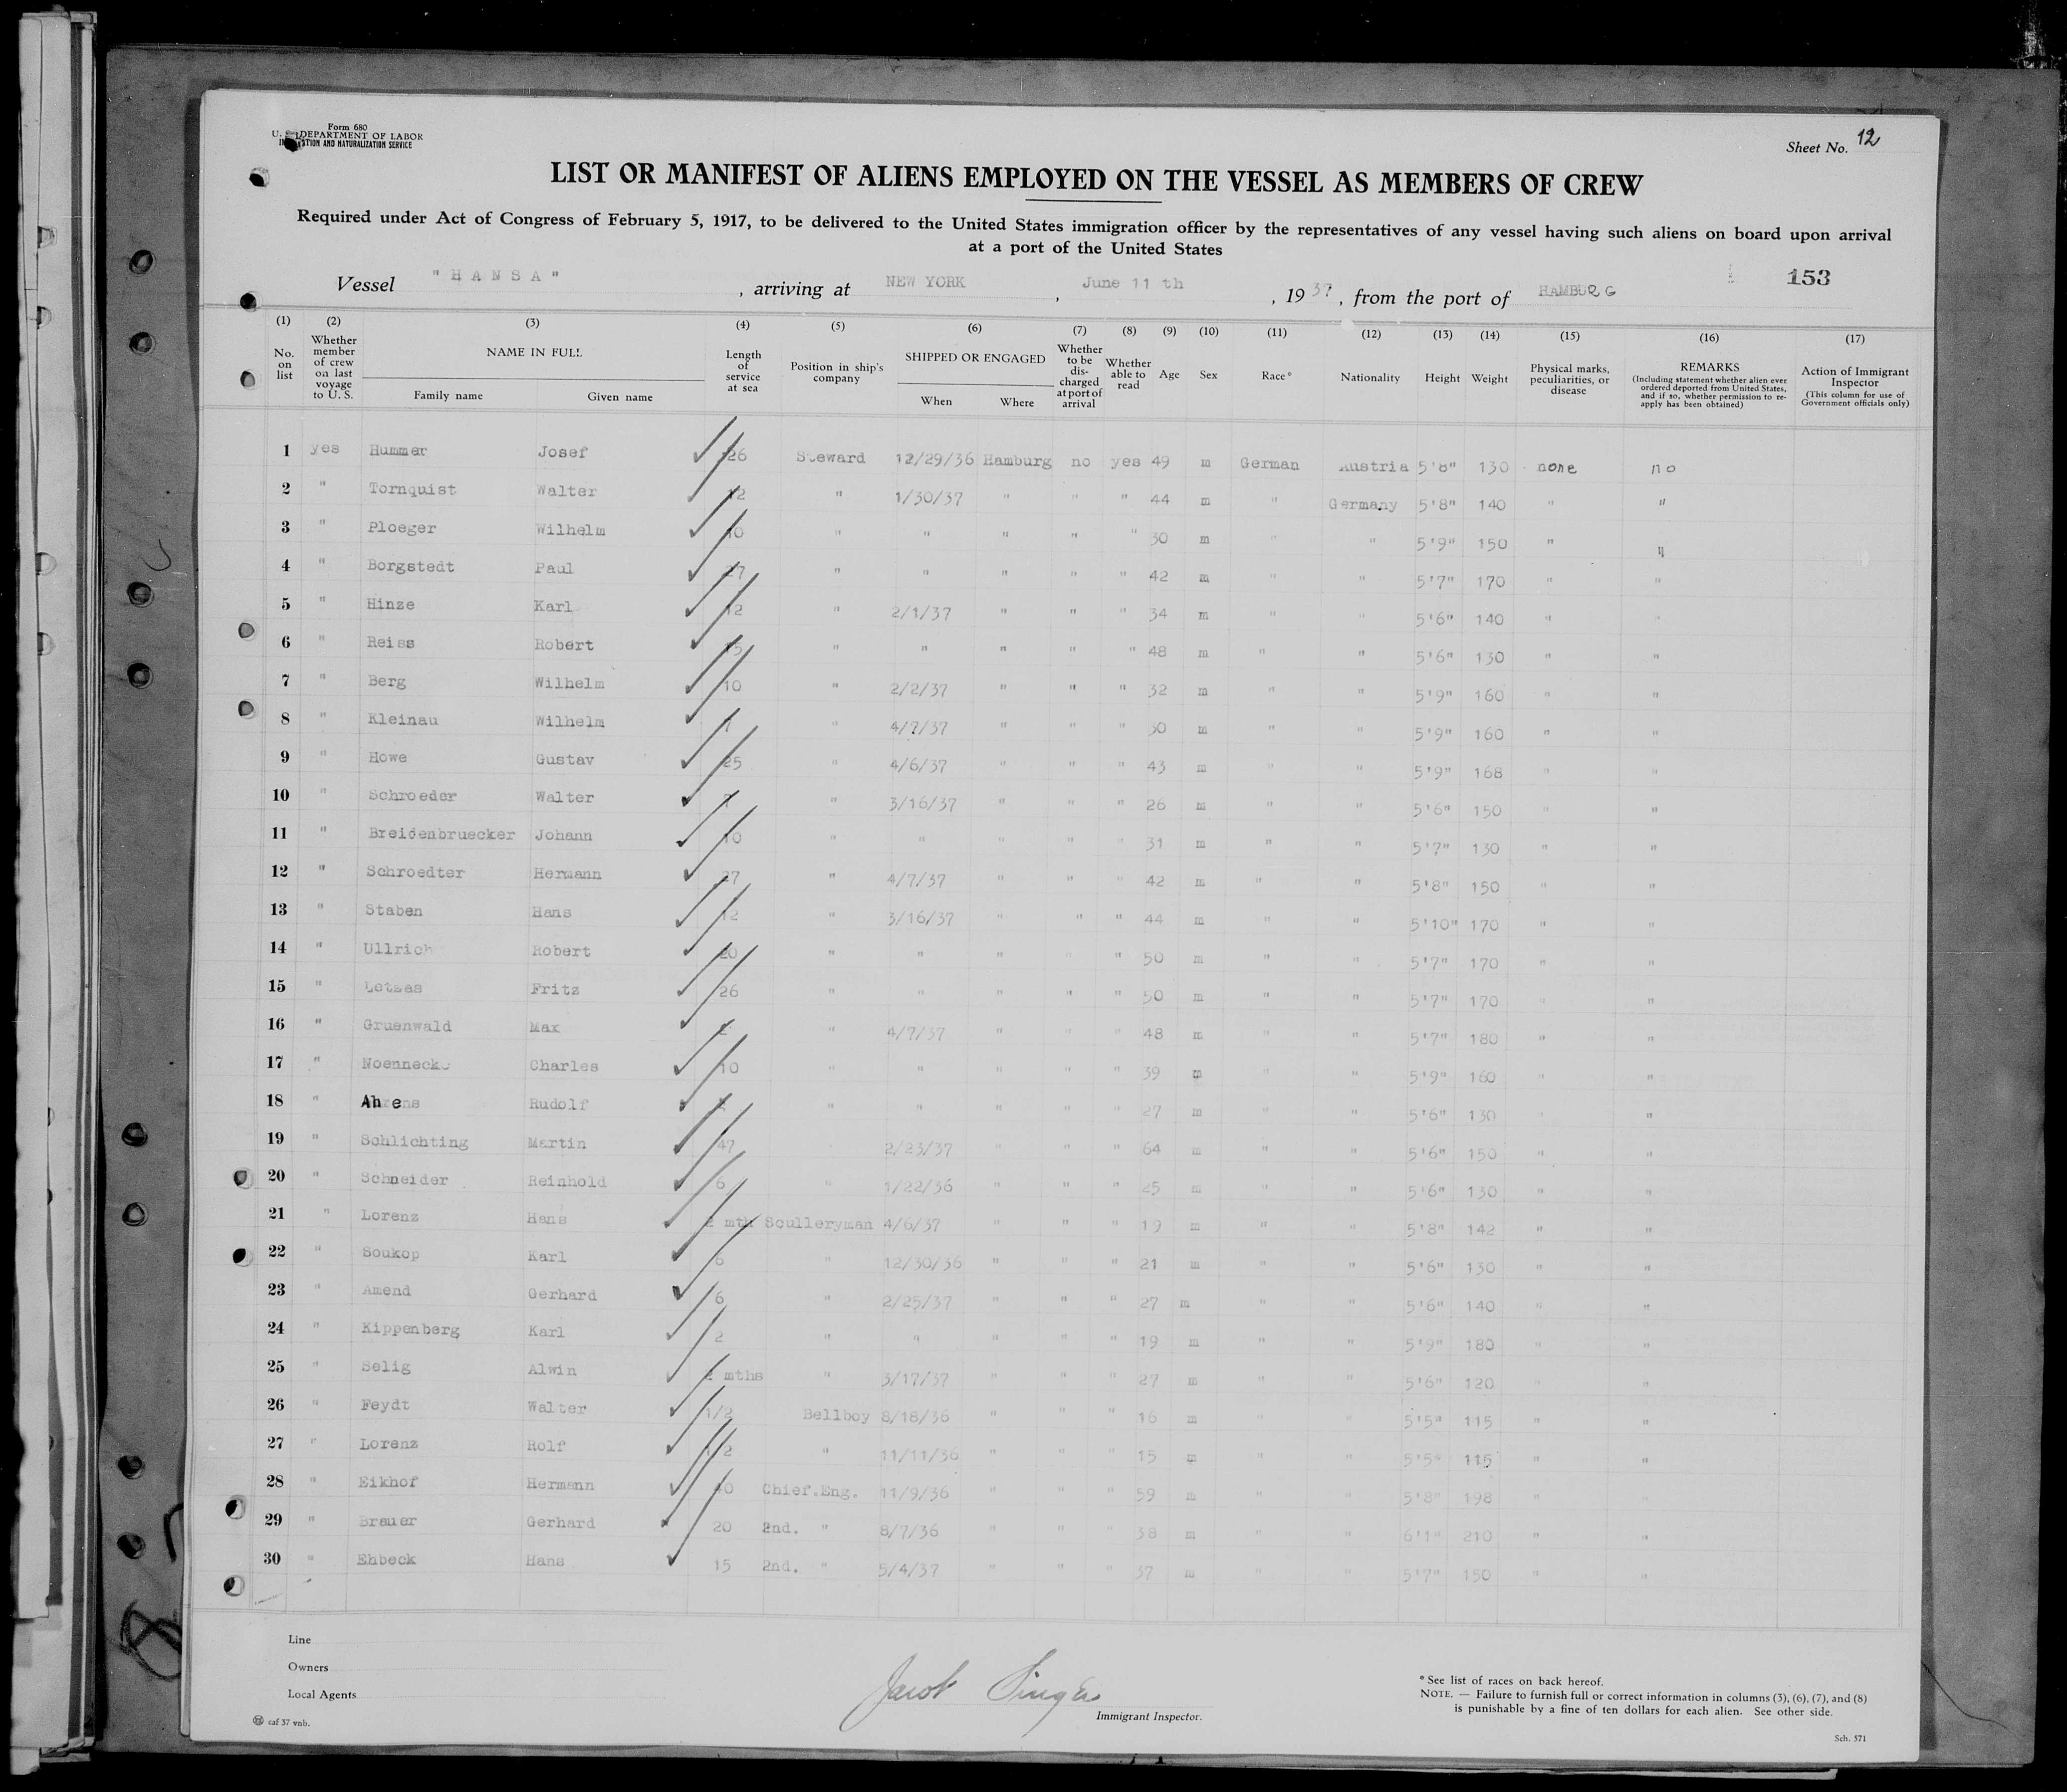 Form 680
U. S. DEPARTMENT OF LABOR
AND NATURALIZATION SERVICE
Sheet No. 12
LIST OR MANIFEST OF ALIENS EMPLOYED ON THE VESSEL AS MEMBERS OF CREW
Required under Act of Congress of February 5, 1917, to be delivered to the United States immigration officer by the representatives of any vessel having such aliens on board upon arrival
at a port of the United States
153
Vessel "HANSA", arriving at NEW YORK, June 11 th, 1937, from the port of HAMBURG
(1) (2) (3) (4) (5) (6) (7) (8) (9) (10) (11) (12) (13) (14) (15) (16) (17)
No. on list Whether member of crew on last voyage to U. S. NAME IN FULL Family name Given name Length of service at sea Position in ship's company SHIPPED OR ENGAGED When Where Whether to be discharged at port of arrival Whether able to read Age Sex Race* Nationality Height Weight Physical marks, peculiarities, or disease REMARKS (Including statement whether alien ever ordered deported from United States, and if so, whether permission to reapply has been obtained) Action of Immigrant Inspector (This column for use of Government officials only)
1 yes Hummer Josef 26 Steward 12/29/36 Hamburg no yes 49 m German Austria 5'8" 130 none no
2 " Tornquist Walter 12 " 1/30/37 " " " 44 m " Germany 5'8" 140 " "
3 " Ploeger Wilhelm 10 " " " " " 30 m " " 5'9" 150 " "
4 " Borgstedt Paul 27 " " " " " 42 m " " 5'7" 170 " "
5 " Hinze Karl 12 " 2/1/37 " " " 34 m " " 5'6" 140 " "
6 " Reiss Robert 15 " " " " " 48 m " " 5'6" 130 " "
7 " Berg Wilhelm 10 " 2/2/37 " " " 32 m " " 5'9" 160 " "
8 " Kleinau Wilhelm " 4/7/37 " " " 30 m " " 5'9" 160 " "
9 " Howe Gustav 25 " 4/6/37 " " " 43 m " " 5'9" 168 " "
10 " Schroeder Walter " 3/16/37 " " " 26 m " " 5'6" 150 " "
11 " Breidenbruecker Johann 10 " " " " " 31 m " " 5'7" 130 " "
12 " Schroedter Hermann 27 " 4/7/37 " " " 42 m " " 5'8" 150 " "
13 " Staben Hans 12 " 3/16/37 " " " 44 m " " 5'10" 170 " "
14 " Ullrich Robert 20 " " " " " 50 m " " 5'7" 170 " "
15 " Fritz 26 " " " " " 50 m " " 5'7" 170 " "
16 " Gruenwald Max " 4/7/37 " " " 48 m " " 5'7" 180 " "
17 " Noennecke Charles 10 " " " " " 39 m " " 5'9" 160 " "
18 " Ahrens Rudolf " " " " " 27 m " " 5'6" 130 " "
19 " Schlichting Martin 47 2/23/37 " " " 64 m " " 5'6" 150 " "
20 " Schneider Reinhold 6 " 1/22/36 " " " 25 m " " 5'6" 130 " "
21 " Lorenz Hans 2 mth Sculleryman 4/6/37 " " " 19 m " " 5'8" 142 " "
22 " Soukop Karl 6 " 12/30/36 " " " 21 m " " 5'6" 130 " "
23 " Amend Gerhard 6 " 2/25/37 " " " 27 m " " 5'6" 140 " "
24 " Kippenberg Karl 2 " " " " " 19 m " " 5'9" 180 " "
25 " Selig Alwin 2 mths " 3/17/37 " " " 27 m " " 5'6" 120 " "
26 " Feydt Walter 1/2 Bellboy 8/18/36 " " " 16 m " " 5'5" 115 " "
27 " Lorenz Rolf 1/2 " 11/11/36 " " " 15 m " " 5'5" 115 " "
28 " Eikhof Hermann 40 Chief.Eng. 11/9/36 " " " 59 m " " 5'8" 198 " "
29 " Brauer Gerhard 20 2nd. " 8/7/36 " " " 38 m " " 6'1" 210 " "
30 " Ehbeck Hans 15 2nd. " 5/4/37 " " " 37 m " " 5'7" 150 " "
Line
Owners
Local Agents
caf 37 vnb.
Jacob Singer
Immigrant Inspector.
* See list of races on back hereof.
NOTE. — Failure to furnish full or correct information in columns (3), (6), (7), and (8)
is punishable by a fine of ten dollars for each alien. See other side.
Sch. 571